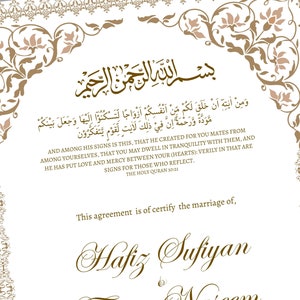 بسم الله الرحمن الرحيم
وَمِنْ آيَتِهِ أَنْ خَلَقَ لَكُمْ مِنْ أَنْفُسِكُمْ أَزْوَاجًا لِتَسْكُنُوا إِلَيْهَا وَجَعَلَ بَيْنَكُمْ
مَوَدَّةً وَرَحْمَةً إِنَّ فِي ذَلِكَ لَآيَتٍ لِقَوْمٍ يَتَفَكَّرُونَ
AND AMONG HIS SIGNS IS THIS, THAT HE CREATED FOR YOU MATES FROM
AMONG YOURSELVES, THAT YOU MAY DWELL IN TRANQUILITY WITH THEM, AND
HE HAS PUT LOVE AND MERCY BETWEEN YOUR (HEARTS); VERILY IN THAT ARE
SIGNS FOR THOSE WHO REFLECT.
THE HOLY QURAN 30:21
This agreement is of certify the marriage of,
Hafiz Sufiyan
&
Naeem